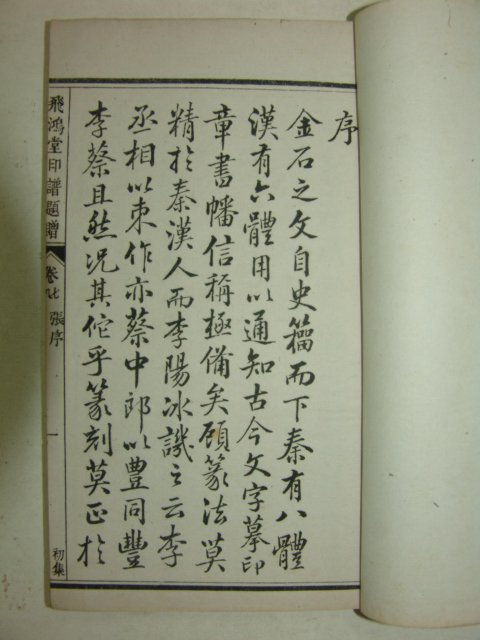 序
金石之文自史籀而下秦有八體
漢有六體用以通知古今文字摹印
章書幡信稱極備矣顧篆法莫
精於秦漢人而李陽冰譏之云李
丞相以束作亦蔡中郎以豊同豐
李蔡且然況其佗乎篆刻莫正於
飛鴻堂印譜題贈
卷
張序
一
初集